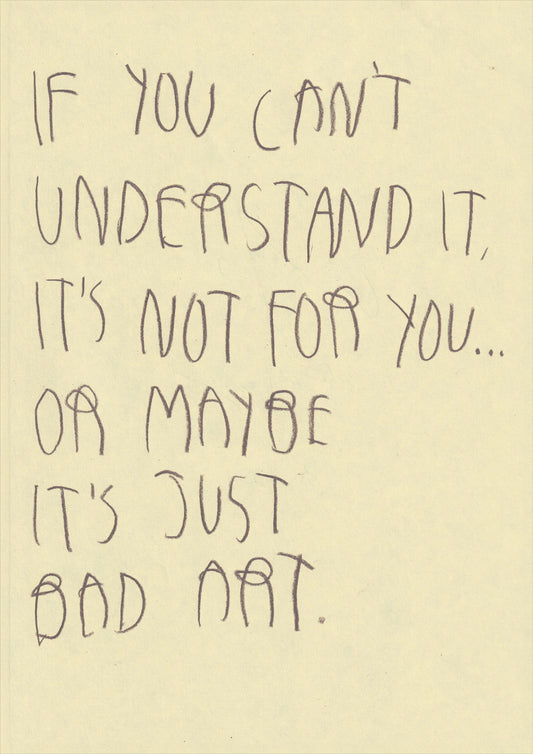 IF YOU CAN'T
UNDERSTAND IT,
IT'S NOT FOR YOU...
OR MAYBE
IT'S JUST
BAD ART.